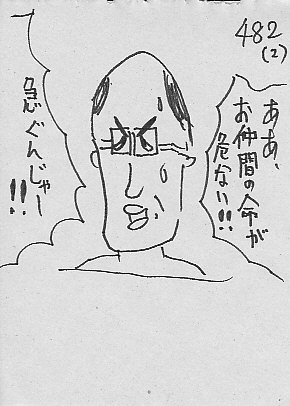 482
(2)
ああ、
お仲間の命が
危ない!!
急ぐんじゃー
!!